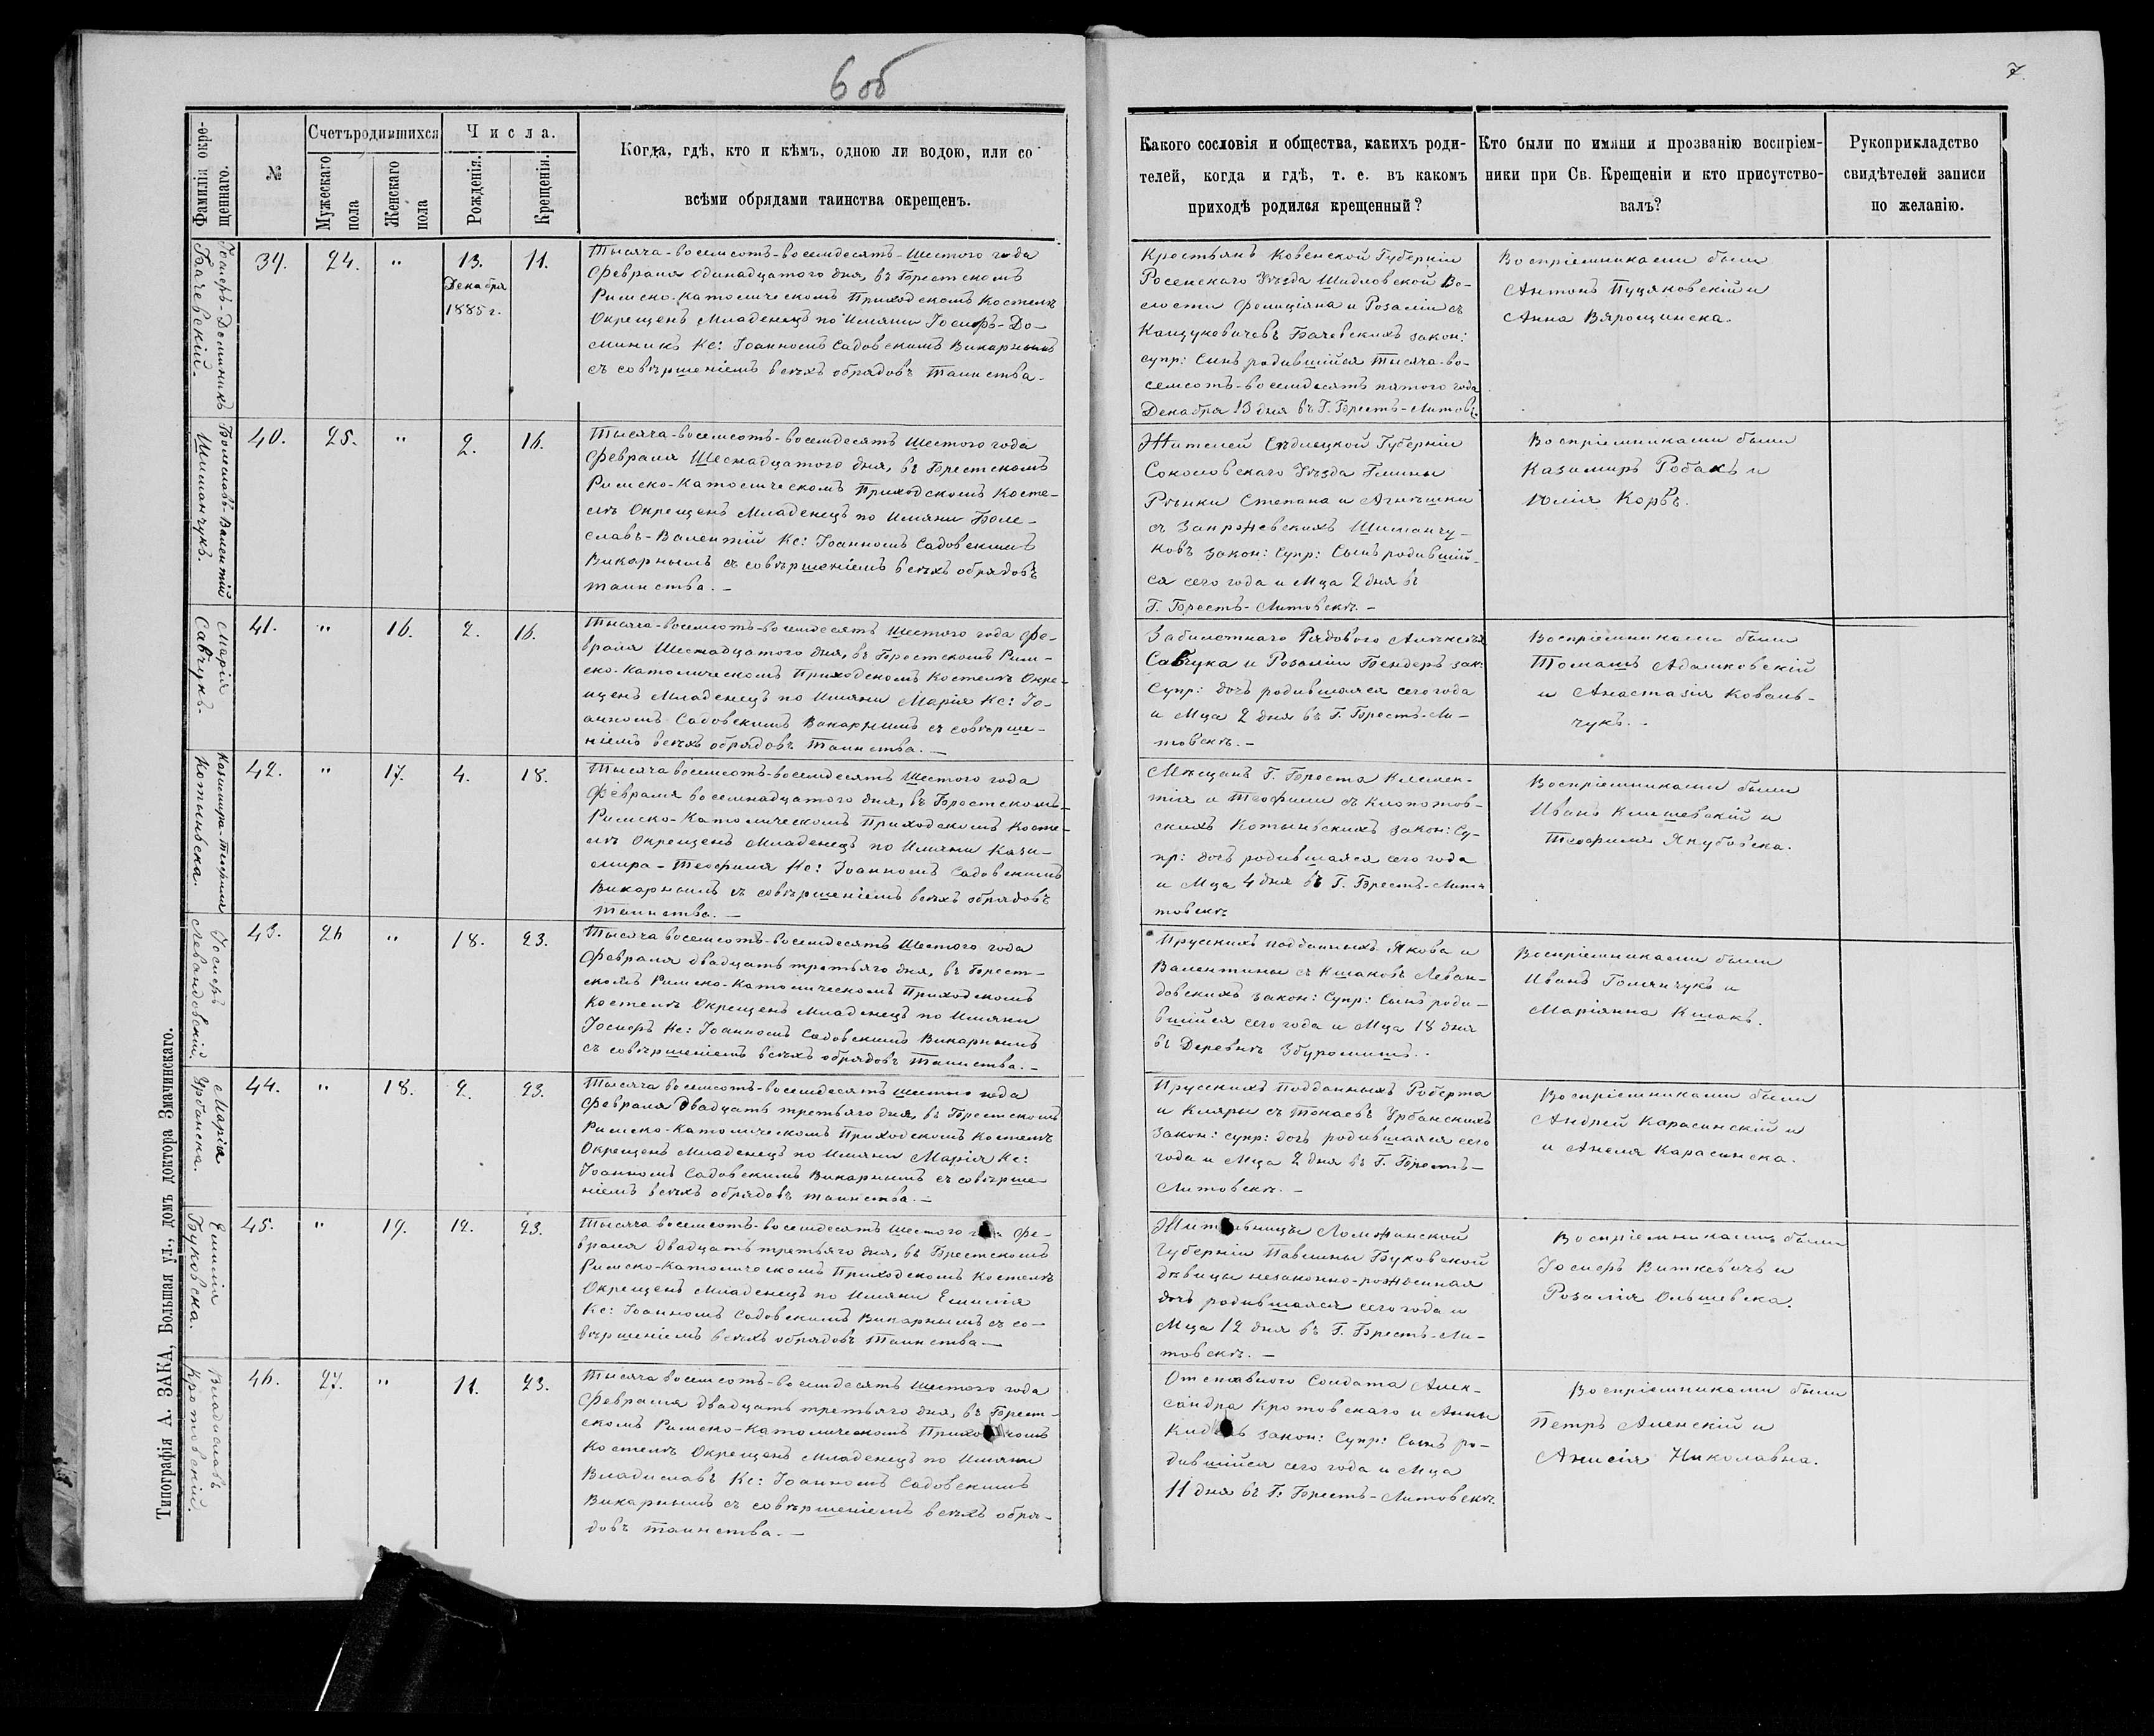 6 об
7.
Фамилія окре-
щеннаго.
№
Счетъ родившихся
Мужескаго
пола
Женскаго
пола
Числа.
Рожденія.
Крещенія.
Когда, гдѣ, кто и кѣмъ, одною ли водою, или со
всѣми обрядами таинства окрещенъ.
Какого сословія и общества, какихъ роди-
телей, когда и гдѣ, т. е. въ какомъ
приходѣ родился крещенный?
Кто были по имяни и прозванію воспріем-
ники при Св. Крещеніи и кто присутство-
валъ?
Рукоприкладство
свидѣтелей записи
по желанію.
Іосифъ-Доминикъ
Бачевскій.
39. 24. " 13. 11.
Декабря
1885 г.
Тысяча-восемсотъ-восемдесятъ-шестого года
Февраля одинадцатого дня, въ Брестскомъ
Римско-Католическомъ Приходскомъ Костелѣ
Окрещенъ Младенецъ по Имяни Іосифъ-До-
миникъ Кс: Іоанномъ Садовскимъ Викарнымъ
съ совѣршеніемъ всѣхъ обрядовъ Таинства.
Крестьянъ Ковенской Губерніи
Росенскаго Уѣзда Шидловской Во-
лости Фелиціяна и Розаліи съ
Бачевскихъ закон:
супр: Сынъ родившійся тысяча-во-
семсотъ-восемдесятъ пятого года
Декабря 13 дня въ Г. Брестъ-Литовс.
Воспріемниками были
Антонъ Пуцяковскій и
Анна Вярощинска.
Болеславъ-Валентій
Шиманчукъ.
40. 25. " 2. 16.
Тысяча-восемсотъ-восемдесятъ Шестого года
Февраля Шеснадцатого дня, въ Брестскомъ
Римско-Католическомъ Приходскомъ Косте-
лѣ Окрещенъ Младенецъ по Имяни Боле-
славъ-Валентій Кс: Іоанномъ Садовскимъ
Викарнымъ съ совѣршеніемъ всѣхъ обрядовъ
таинства. -
Жителей Сѣдлецкой Губерніи
Соколовскаго Уѣзда Гмины
Рѣпки Степана и Агнѣшки
съ Шиманчу-
ковъ закон: Супр: Сынъ родившій-
ся сего года и Мца 2 дня въ
Г. Брестъ-Литовскѣ. -
Воспріемниками были
Казимиръ Робакъ и
Юлія Корвъ.
Марія
Савчукъ.
41. " 16. 2. 16.
Тысяча-восемсотъ-восемдесятъ шестого года Фе-
враля Шеснадцатого дня, въ Брестскомъ Рим-
ско-Католическомъ Приходскомъ Костелѣ Окре-
щенъ Младенецъ по Имяни Марія Кс: Іо-
анномъ Садовскимъ Викарнымъ съ совѣрше-
ніемъ всѣхъ обрядовъ Таинства. -
Забилетнаго Рядового Алѣксѣя
Савчука и Розаліи Бендеръ зак:
Супр: дочь родившаяся сего года
и Мца 2 дня въ Г. Брестъ-Ли-
товскѣ. -
Воспріемниками были
Томашъ Адамковскій
и Анастазія Коваль-
чукъ. -
Казимира-Теофиля
Котыньска.
42. " 17. 4. 18.
Тысяча восемсотъ-восемдесятъ Шестого года
Февраля восемнадцатого дня, въ Брестскомъ
Римско-Католическомъ Приходскомъ Косте-
лѣ Окрещенъ Младенецъ по Имяни Кази-
мира-Теофиля Кс: Іоанномъ Садовскимъ
Викарнымъ съ совѣршеніемъ всѣхъ обрядовъ
Таинства. -
Мѣщанъ Г. Бреста Клемен-
тія и Теофили съ Клопотов-
скихъ Котыньскихъ закон: Су-
пр: дочь родившаяся сего года
и Мца 4 дня въ Г. Брестъ-Лит-
товскѣ
Воспріемниками были
Иванъ Климевскій и
Теофиля Якубовска.
Іосифъ
Левандовскій,
43. 26 " 18. 23.
Тысяча восемсотъ-восемдесятъ Шестого года
Февраля двадцать третьяго дня, въ Брест-
скомъ Римско-Католическомъ Приходскомъ
Костелѣ Окрещенъ Младенецъ по Имяни
Іосифъ Кс: Іоанномъ Садовскимъ Викарнымъ
съ совѣршеніемъ всѣхъ обрядовъ Таинства. -
Прусскихъ подданныхъ Якова и
Валентины съ Кшаковъ Леван-
довскихъ закон: Супр: Сынъ роди-
вшійся сего года и Мца 18 дня
въ Деревнѣ Збуромишъ. -
Воспріемниками были
Иванъ Голянчукъ и
Маріянна Кшакъ.
Марія
Урбанска.
44. " 18. 2. 23.
Тысяча восемсотъ-восемдесятъ шестого года
Февраля двадцать третьяго дня, въ Брестскомъ
Римско-Католическомъ Приходскомъ Костелѣ
Окрещенъ Младенецъ по Имяни Марія Кс:
Іоанномъ Садовскимъ Викарнымъ съ совѣрше-
ніемъ всѣхъ обрядовъ таинства. -
Прусскихъ Подданныхъ Роберта
и Кляры съ Токаевъ Урбанскихъ
закон: супр: дочь родившаяся сего
года и Мца 2 дня въ Г. Брестъ-
Литовскѣ. -
Воспріемниками были
Андрей Карасинскій и
и Анеля Карасинска.
Емилія
Буковска.
45. " 19. 12. 23.
Тысяча восемсотъ-восемдесятъ шестого года Фе-
враля двадцать третьяго дня, въ Брестскомъ
Римско-Католическомъ Приходскомъ Костелѣ
Окрещенъ Младенецъ по Имяни Емилія
Кс: Іоанномъ Садовскимъ Викарнымъ съ со-
вѣршеніемъ всѣхъ обрядовъ Таинства -
Жительницы Ломжинской
Губерніи Павлины Буковской
дѣвицы незаконно-рожденная
дочь родившаяся сего года и
Мца 12 дня въ Г. Брестъ-Ли-
товскѣ. -
Воспріемниками были
Іосифъ Виткевичъ и
Розалія Ольшевска.
Владиславъ
Кротовскій.
46. 27. " 11. 23.
Тысяча восемсотъ-восемдесятъ шестого года
Февраля двадцать третьяго дня, въ Брест-
скомъ Римско-Католическомъ Приходскомъ
Костелѣ Окрещенъ Младенецъ по Имяни
Владиславъ Кс: Іоанномъ Садовскимъ
Викарнымъ съ совѣршеніемъ всѣхъ обря-
довъ таинства. -
Отставного Солдата Алек-
сандра Кротовскаго и Анны
закон: Супр: Сынъ ро-
дившійся сего года и Мца
11 дня въ Г. Брестъ-Литовскѣ
Воспріемниками были
Петръ Аленскій и
Анисія Николавна.
Типографія А. ЗАКА, Большая ул., домъ доктора Значинскаго.